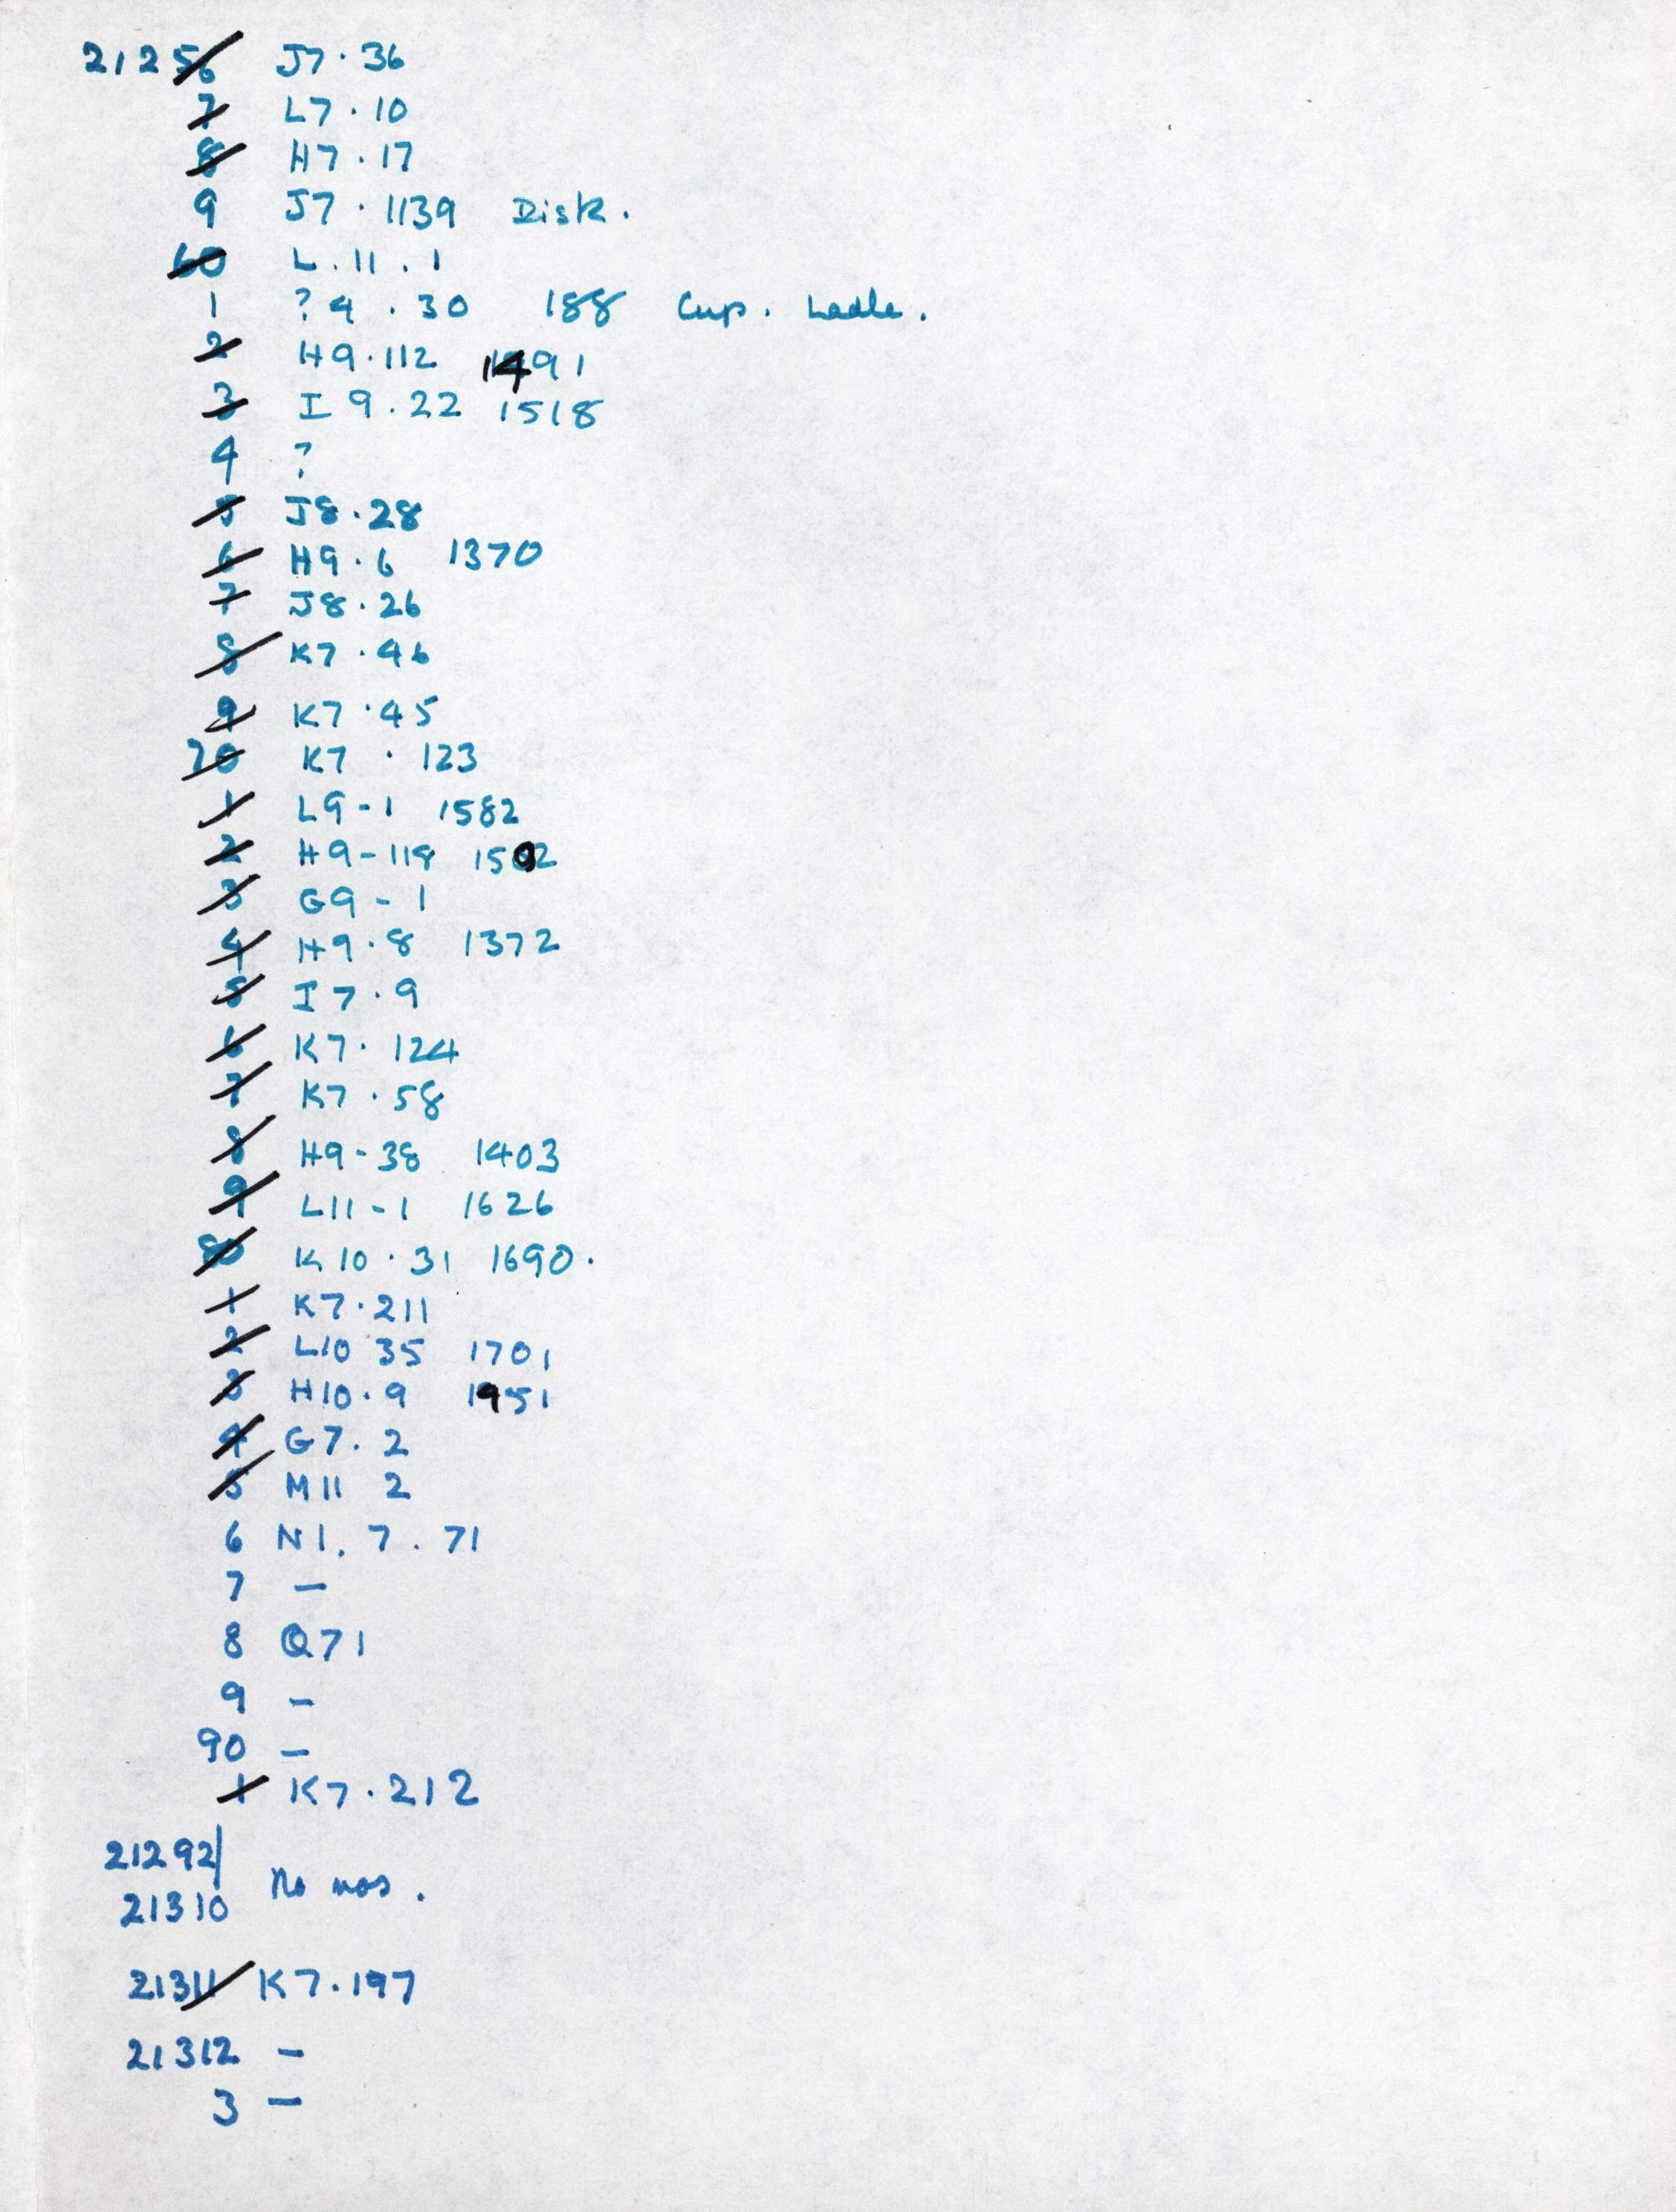 21256 J7.36
7 L7.10
8 H7.17
9 J7.1139 Disk.
60 L.11.1
1 ?9.30 188 Cup. Ladle.
2 H9.112 1491
3 I9.22 1518
4 ?
5 J8.28
6 H9.6 1370
7 J8.26
8 K7.46
9 K7.45
70 K7.123
1 L9-1 1582
2 H9-118 1502
3 G9-1
4 H9.8 1372
5 I7.9
6 K7.124
7 K7.58
8 H9-38 1403
9 L11-1 1626
80 K10.31 1690.
1 K7.211
2 L10 35 1701
3 H10.9 1951
4 G7.2
5 M11 2
6 N1.7.71
7 —
8 Q71
9 —
90 —
1 K7.212
21292/
21310 No nos.
21311 K7.197
21312 —
3 —